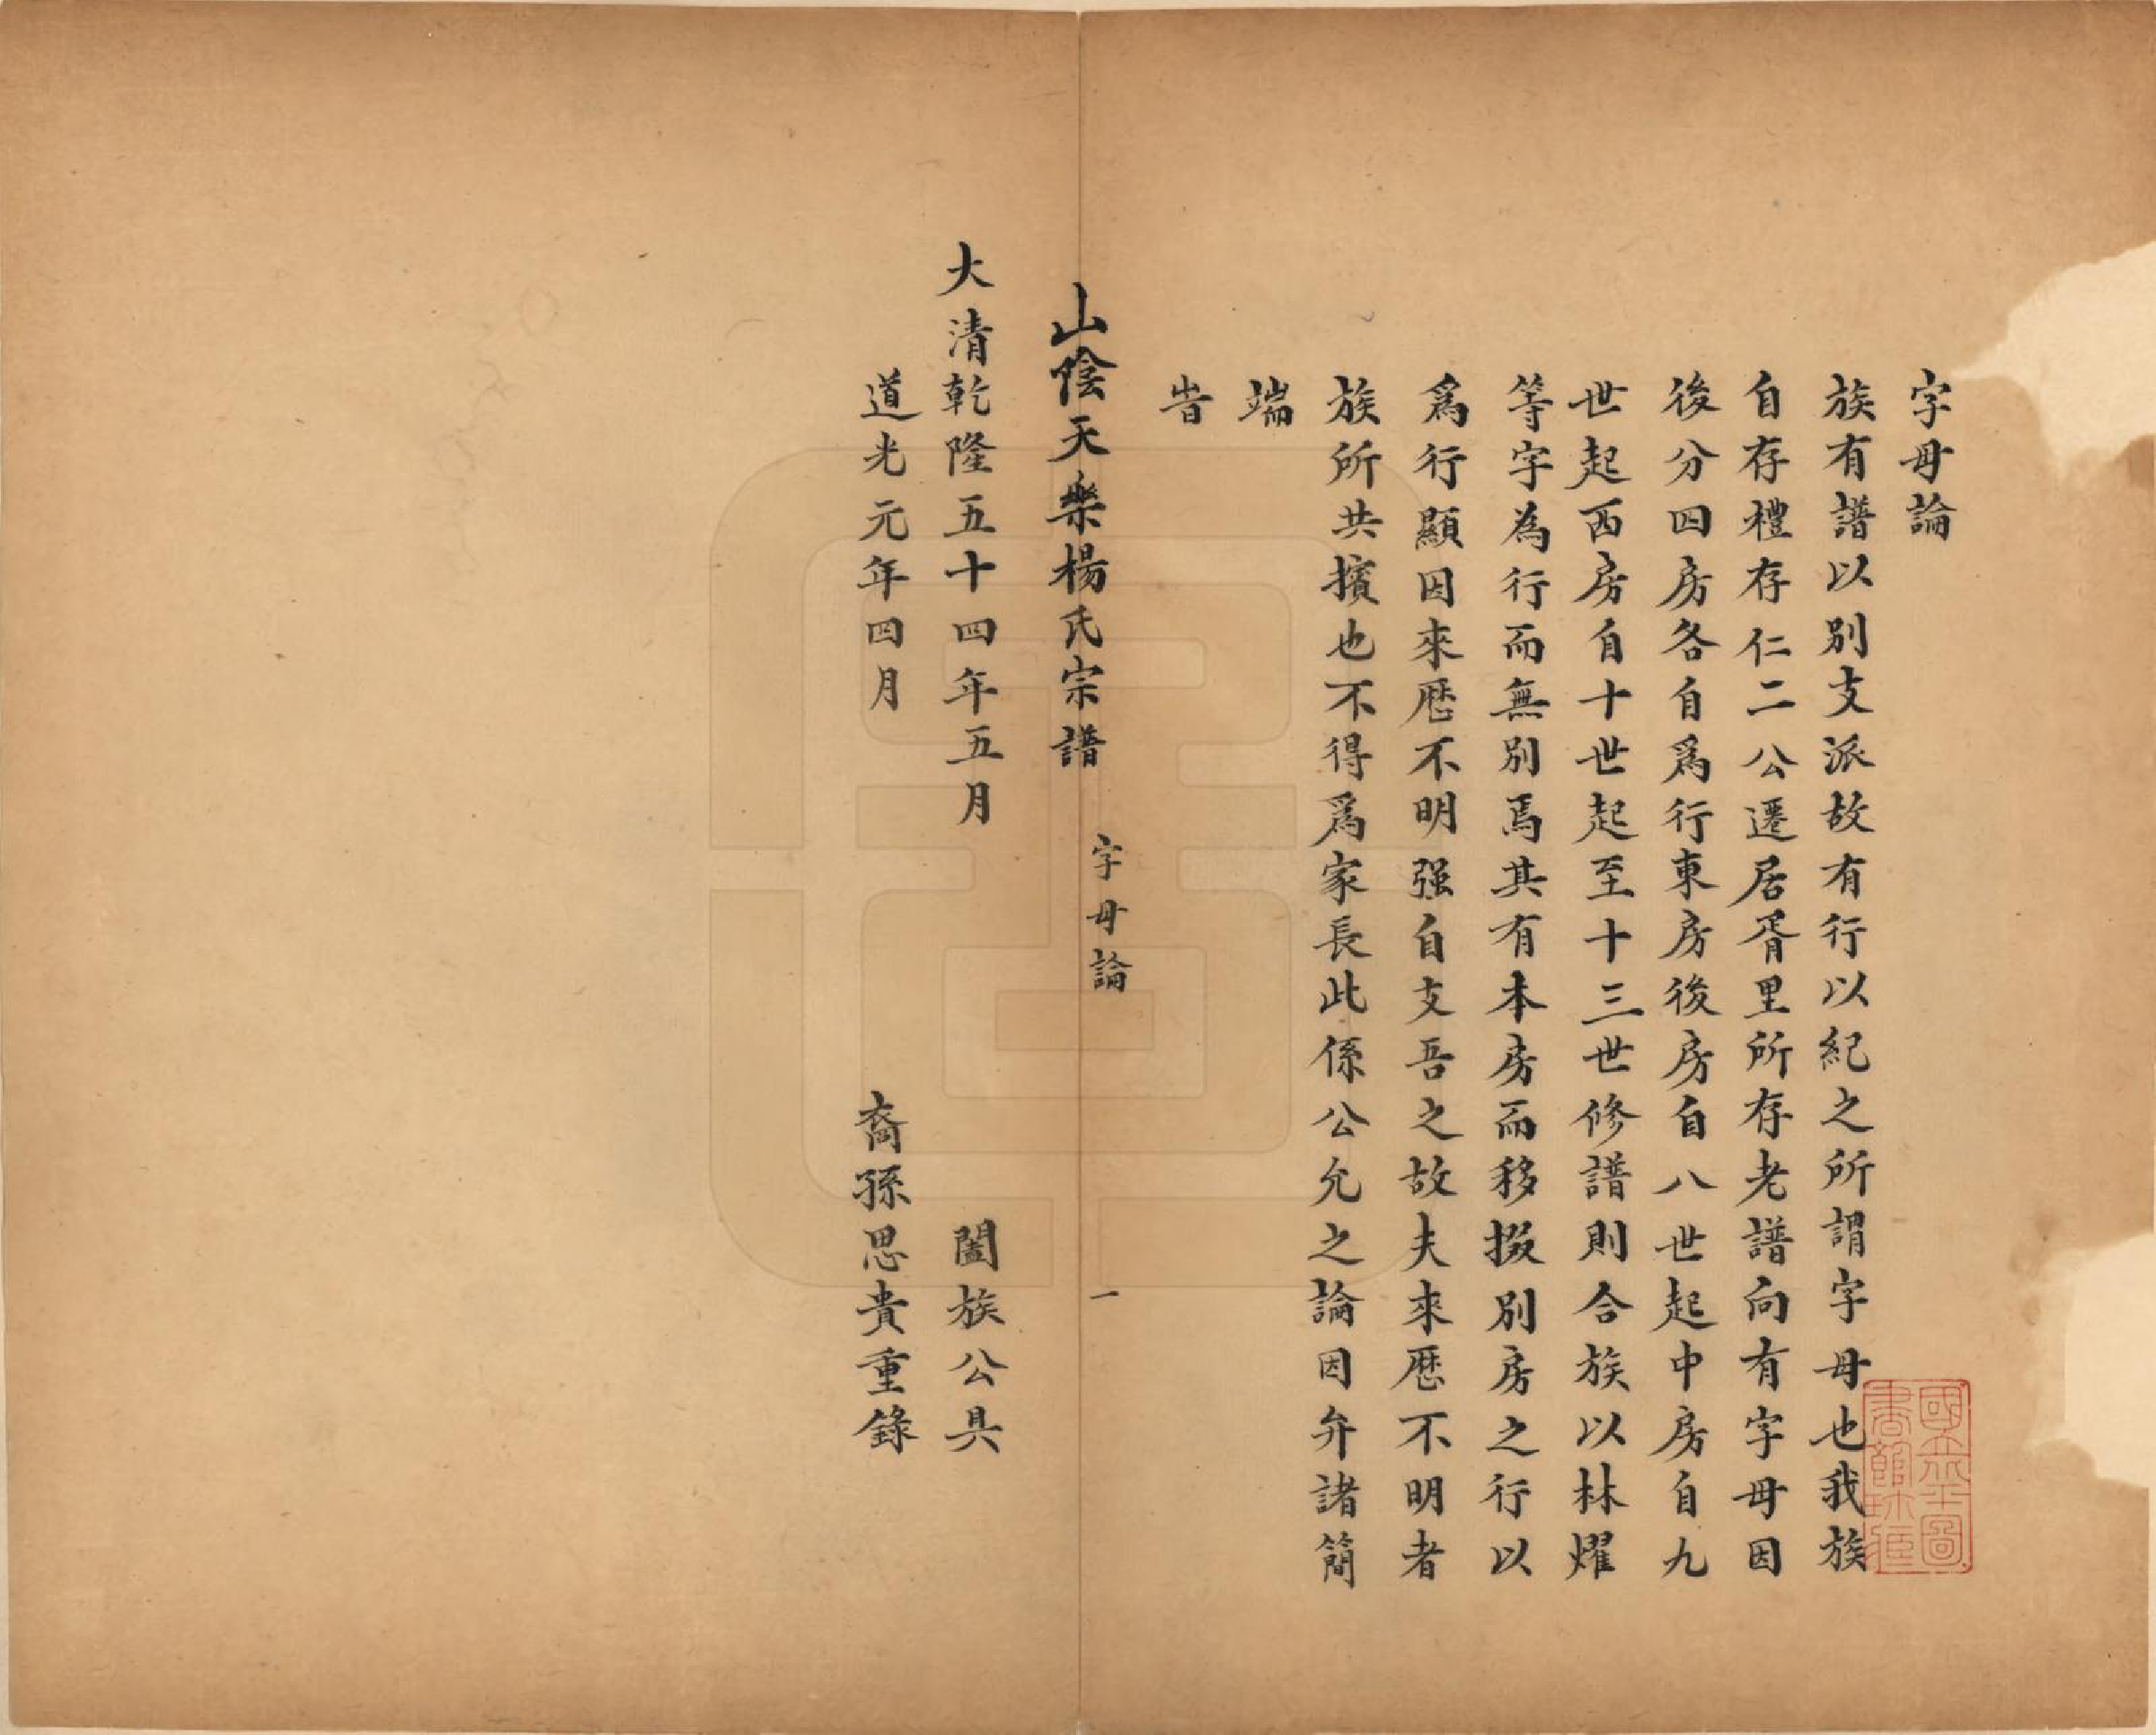 字母論
族有譜以別支派故有行以紀之所謂字母也我族
自存禮存仁二公遷居胥里所存老譜向有字母因
後分四房各自爲行東房後房自八世起中房自九
世起西房自十世起至十三世修譜則合族以林燿
等字為行而無別焉其有本房而移掇別房之行以
爲行顯因來歷不明强自支吾之故夫來歷不明者
族所共擯也不得爲家長此係公允之論因弁諸簡
端
旹
山陰天樂楊氏宗譜
字母論
一
大清乾隆五十四年五月
闔族公具
道光元年四月
裔孫思貴重錄
國立北平圖
書館珍藏